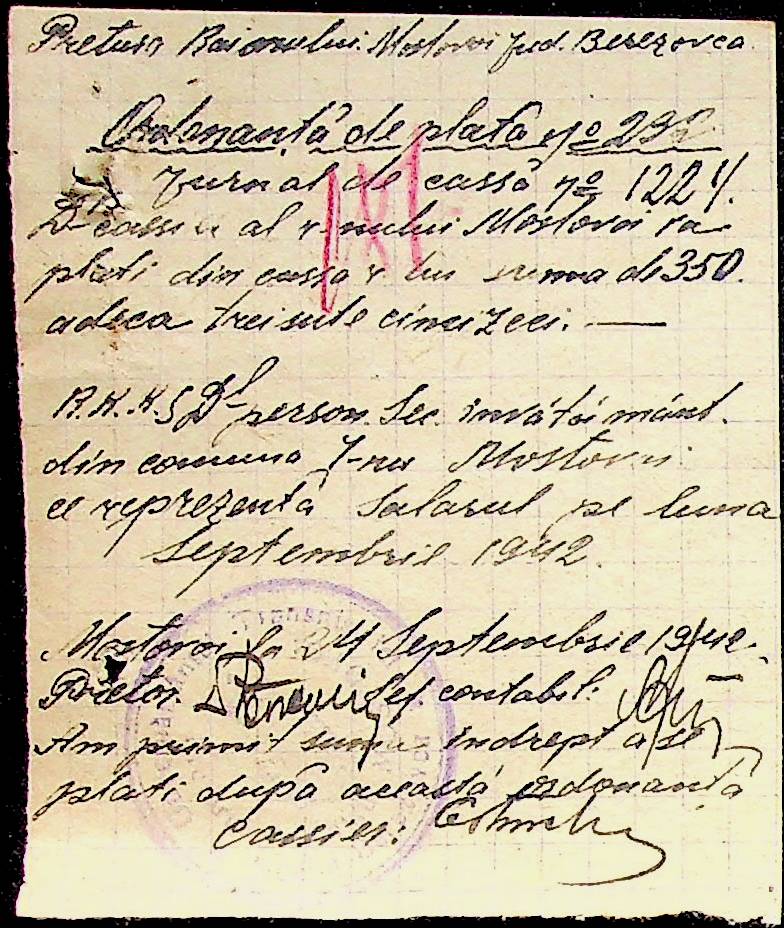 Pretura Raionului Mostovoi jud. Berezovca
Ordonanţă de plată No 232
Jurnal de cassă No 1224.
D-l cassier al r-nului Mostovoi va
plati din cassa r-lui suma de 350.
adeca treisute cincizeci. —
R.K.K.S D-l person. Sec. învățământ.
din comuna Mostovoi
ce reprezentă Salarul pe luna
Septembrie 1942.
Mostovoi la 24 Septembrie 1942.
Pretor. Șef. contabil:
Am primit suma îndrept a se
plati după această ordonanță
Cassier: